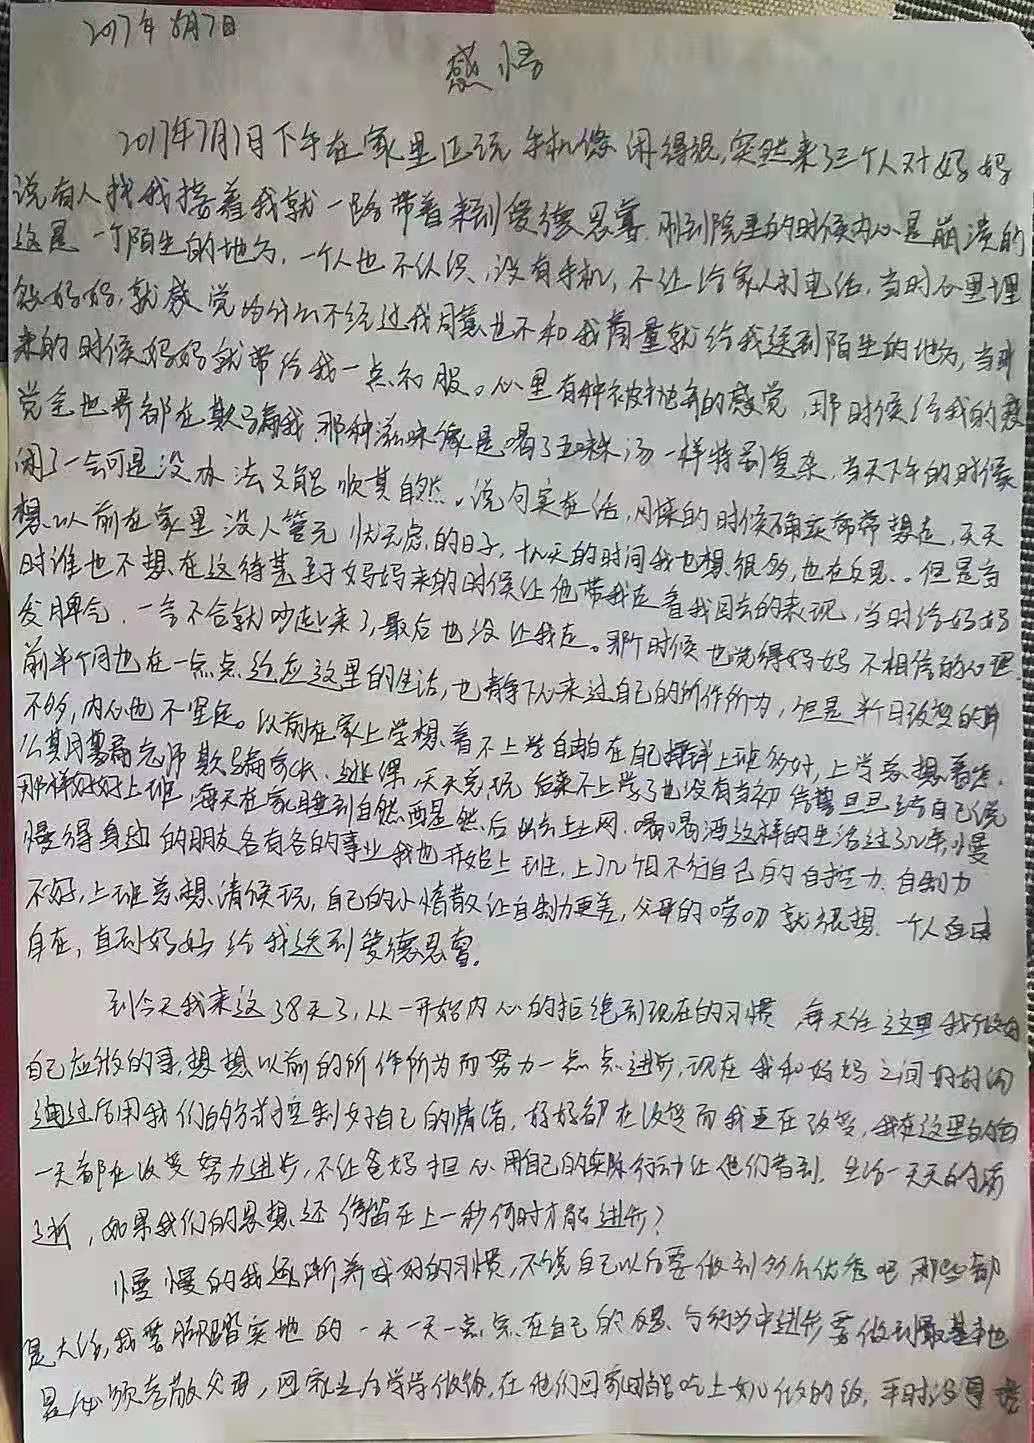 2017年8月7日
感悟
2017年7月1日下午在家里正玩手机悠闲得很,突然来了三个人对妈妈
说有人找我接着我就一路带着来到爱德思睿.刚到院里的时候内心是崩溃的
这是一个陌生的地方,一个人也不认识,没有手机,不让给家人打电话,当时心里埋
怨妈妈,就感觉为什么不经过我同意也不和我商量就给我送到陌生的地方,当时
来的时候妈妈就带给我一点衣服。心里有种被抛弃的感觉,那时候给我的感
觉全世界都在欺骗我,那种滋味像是喝了五味汤一样特别复杂,当天下午的时候
闹了一会可是没办法只能顺其自然。说句实在话,刚来的时候确实常常想走,天天
想以前在家里没人管无忧无虑的日子,十几天的时间我也想很多,也在反思..但是当
时谁也不想在这待甚至于妈妈来的时候让他带我走看我回去的表现,当时给妈妈
发脾气,一言不合就吵起来了,最后也没让我走。那个时候也觉得妈妈不相信的心理
前半个月也在一点点适应这里的生活,也静下心来过自己的所作所为,但是半月改变的并
不多,内心也不坚定。以前在家上学想着不上学自由自在自己挣钱上班多好,上学总想着怎
么欺骗老师欺骗家长.逃课,天天充玩 后来不上学了也没有当初信誓旦旦给自己说
那样好好上班,每天在家睡到自然醒然后出去上网.喝喝酒这样的生活过了几年,慢
慢得身边的朋友各有各的事业我也开始上班,上了几个月不行自己的自控力.自制力
不好,上班总想请假玩,自己的小懒散让自制力更差,父母的唠叨就很想.一个人自由
自在,直到妈妈给我送到爱德思睿。
到今天我来这38天了,从一开始内心的拒绝到现在的习惯,每天在这里我做好
自己应做的事,想想以前的所作所为而努力一点点进步,现在我和妈妈之间好好沟
通过后用我们的方式控制好自己的情绪,妈妈都在改变而我更在改变,我在这里的每
一天都在改变努力进步,不让爸妈担心用自己的实际行动让他们看到.生活一天天的消
逝,如果我们的思想还停留在上一秒何时才能进步?
慢慢的我逐渐养成好的习惯,不说自己以后要做到多么优秀吧那些都
是大话,我要脚踏实地的一天一天一点点在自己的反思与行为中进步要做到最基本也
是必须孝敬父母,回家之后学学做饭,在他们回家时能吃上女儿做的饭,平时没事